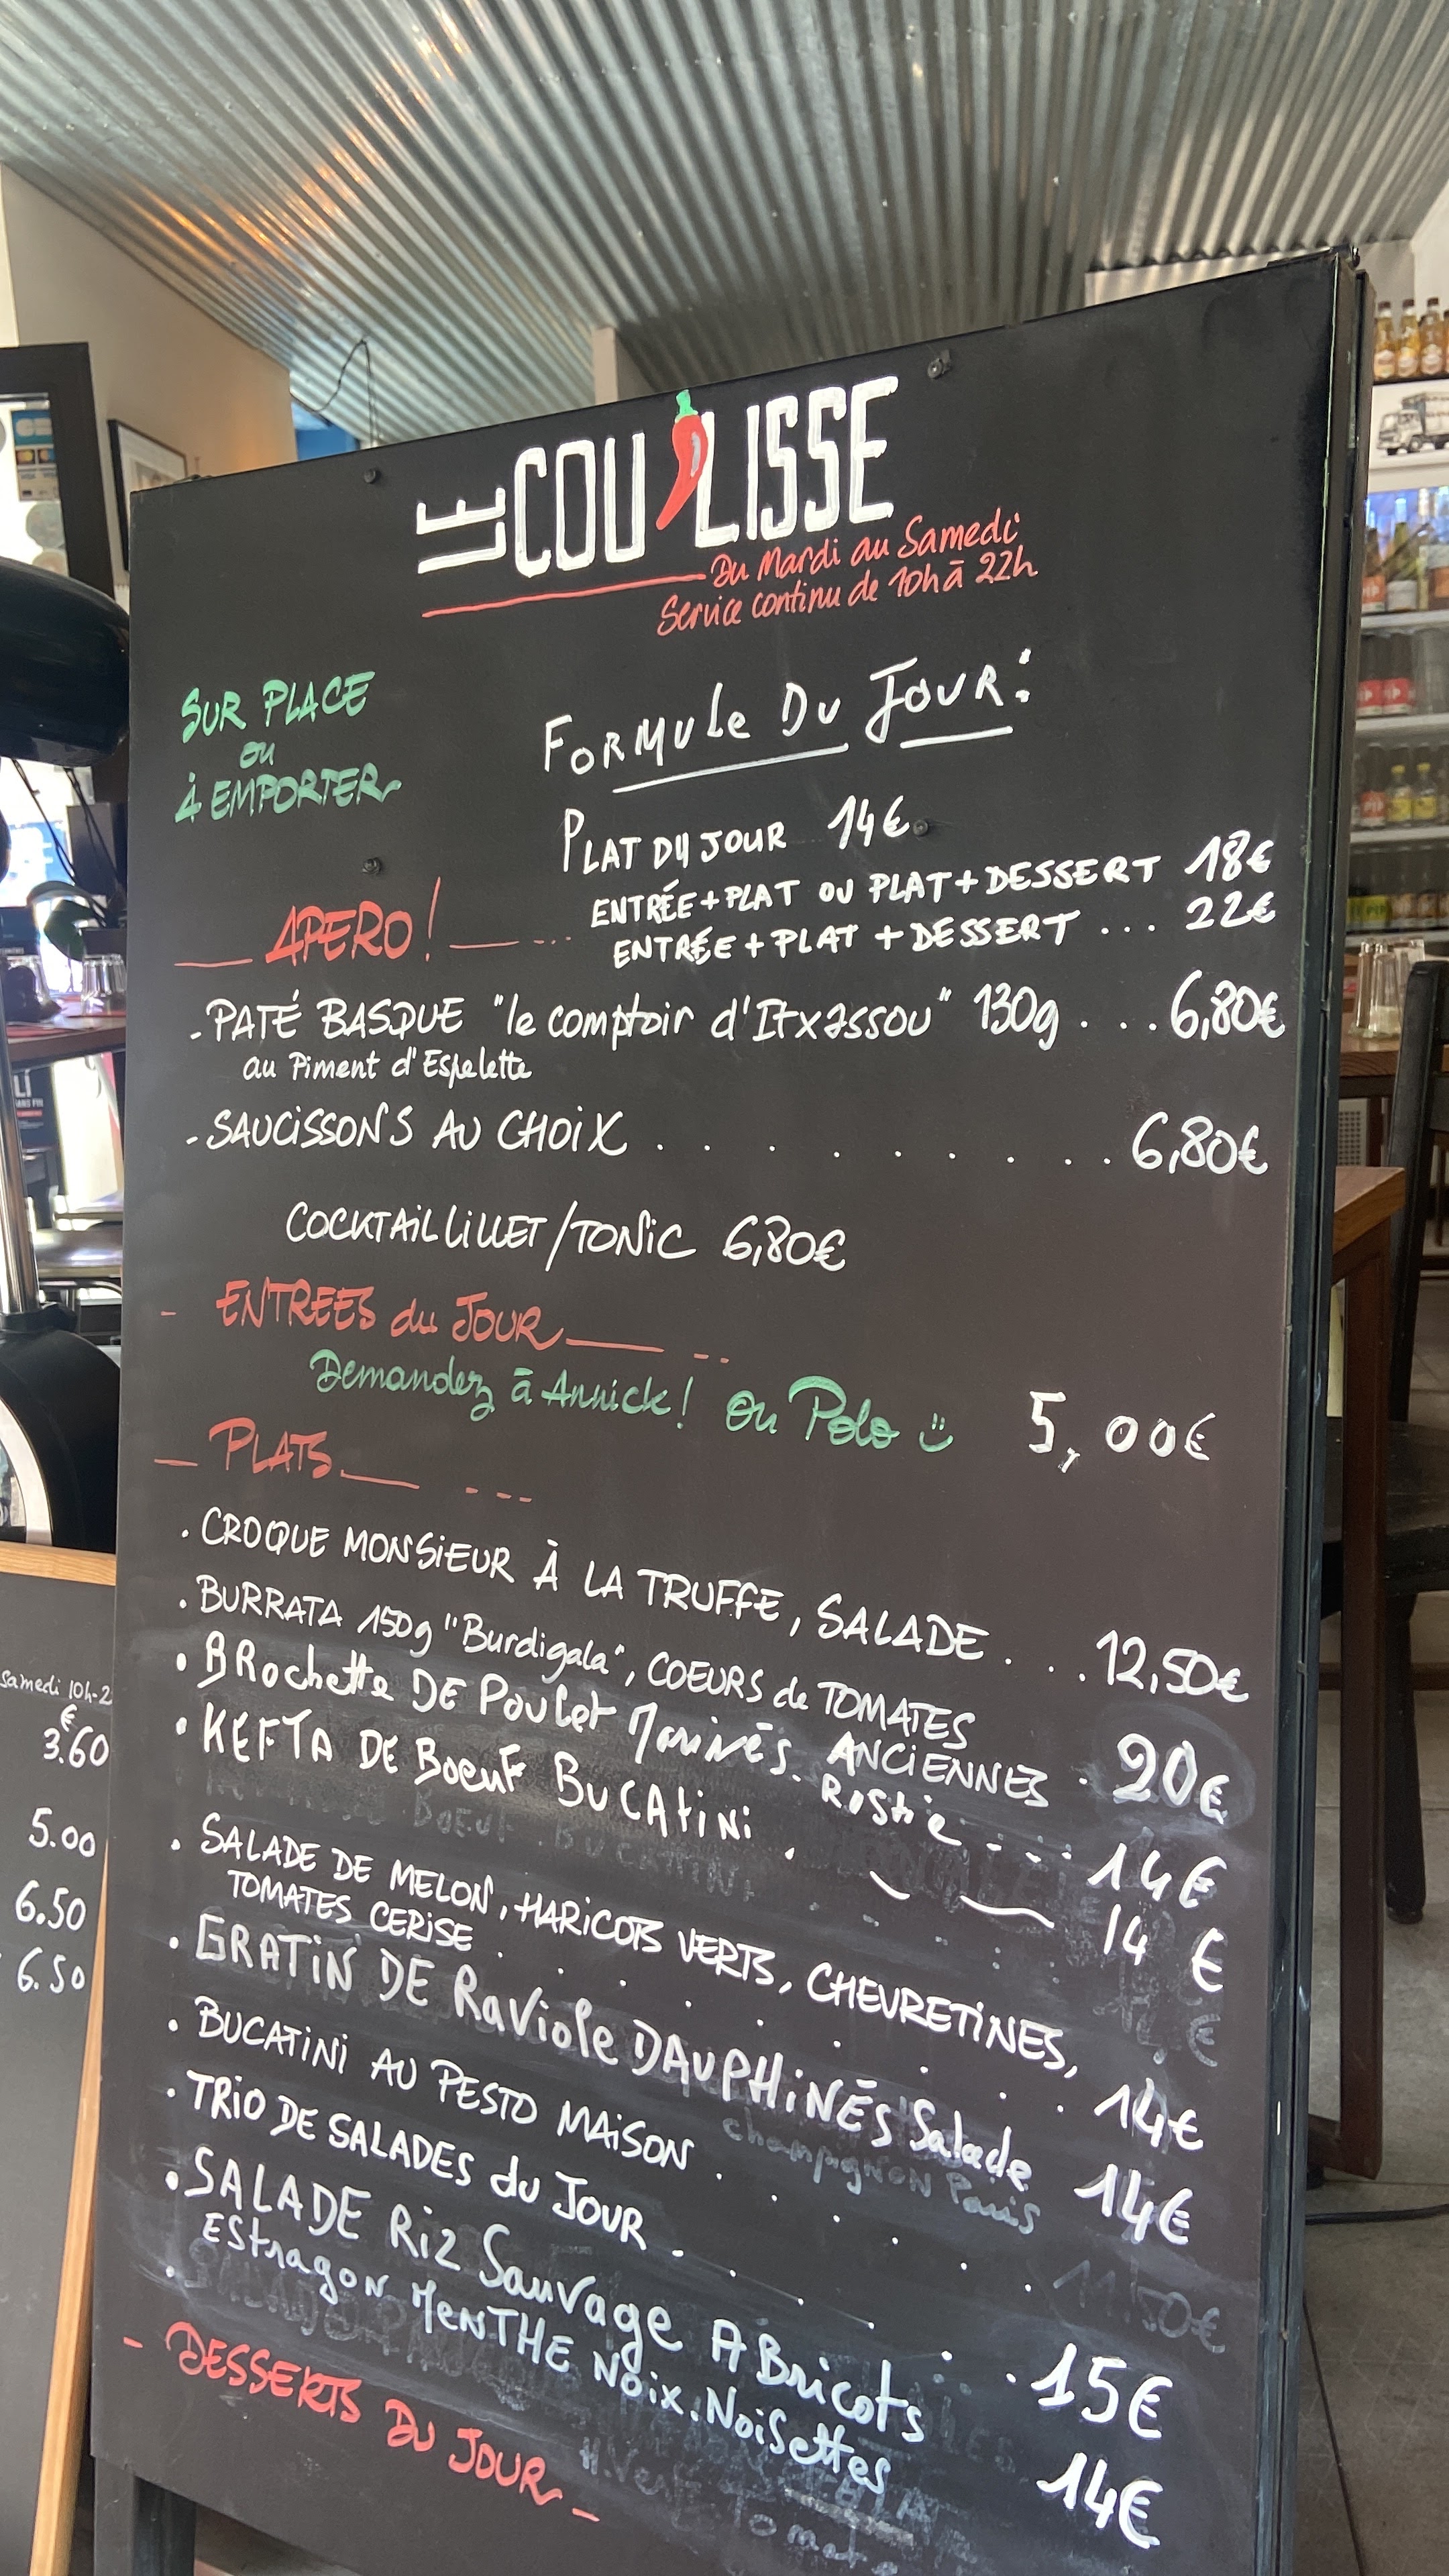 LE COU'LISSE
Du Mardi au Samedi
Service continu de 10h à 22h
SUR PLACE
ou
À EMPORTER
FORMULE DU JOUR:
PLAT DU JOUR 14€
ENTRÉE+PLAT OU PLAT+DESSERT 18€
ENTRÉE+PLAT+DESSERT ... 22€
APERO!
- PATÉ BASQUE "le comptoir d'Itxassou" 130g . . . . 6,80€
au Piment d'Espelette
- SAUCISSONS AU CHOIX . . . . . . . . . 6,80€
COCKTAIL LILLET/TONIC 6,80€
- ENTREES du JOUR
Demandez à Annick! ou Polo 5,00€
PLATS
. CROQUE MONSIEUR À LA TRUFFE, SALADE . . . 12,50€
. BURRATA 150g "Burdigala", COEURS de TOMATES
ANCIENNES . 20€
. BROchette DE POULET Marinés. ROStie - - - 14€
. KEFTA DE BOEUF BUCATINI . 14 €
. SALADE DE MELON, HARICOTS VERTS, CHEVRETINES,
TOMATES CERISE . . . . . . . . 14€
. GRATIN DE RaViole DAUPHINÉS Salade 14€
champignon Paris
. BUCATINI AU PESTO MAISON . . . . . . 11,50€
. TRIO DE SALADES du JOUR . . . . . . 15€
. SALADE Riz Sauvage ABricots
EStragon MENTHE Noix. NoiSettes 14€
- DESSERTS DU JOUR -
samedi 10h-2
€
3.60
5.00
6.50
6.50